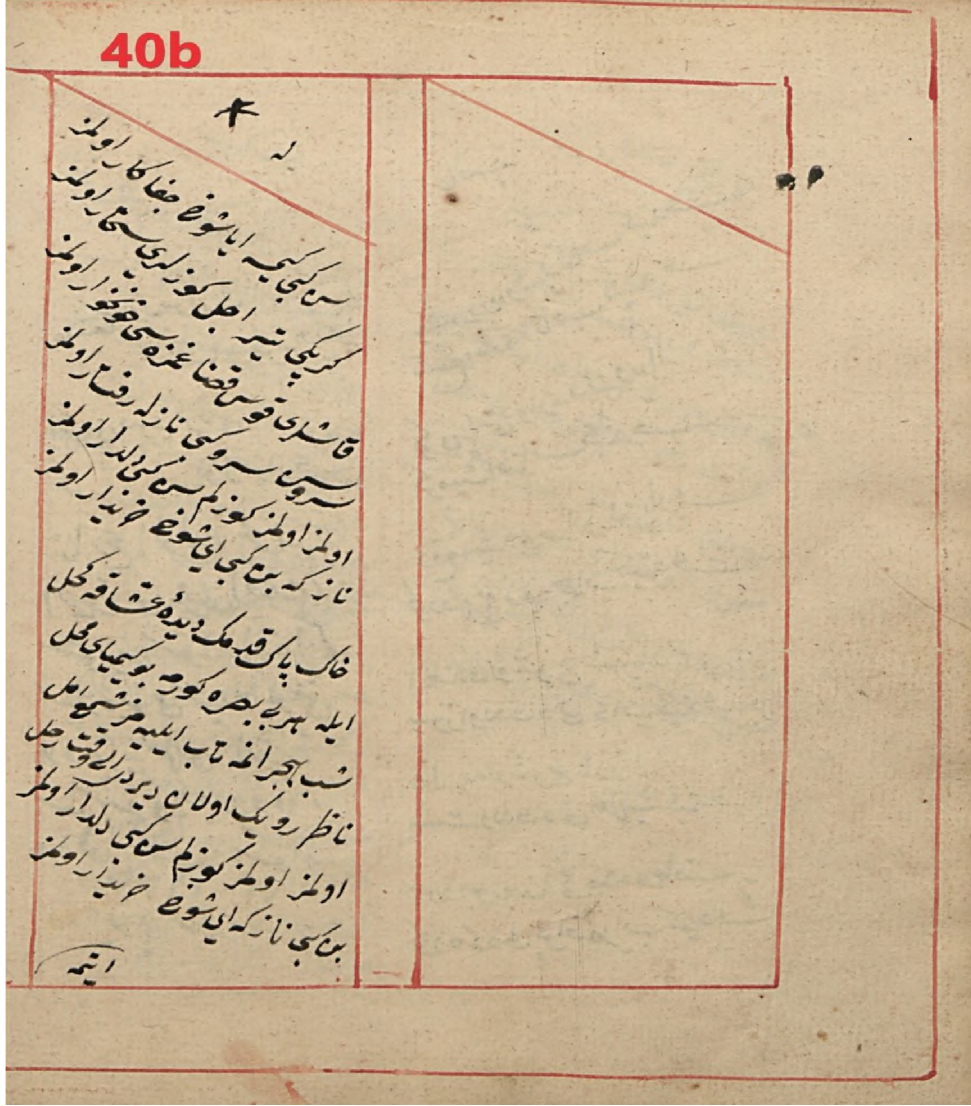 40b
له
سن كبی كیمسه ایا شوخ جفاكار اولمز
كرپكی تیر اجل كوزلری سحّار اولمز
قاشلری قوس قضا غمزه سی خونخوار اولمز
سروسن سرو كبی نازله رفتار اولمز
اولمز اولمز كوزلم سن كبی دلدار اولمز
نازكه بن كبی ای شوخ خریدار اولمز
خاك پاك قدمك دیدهٔ عشاقه كحل
ایله هر بی بصره كورمه بو كیمیای محل
شب هجر انمه تاب ایلیه مز شمع امل
ناظر رویك اولان دیر
اولمز اولمز كوزلم سن كبی دلدار اولمز
بن كبی نازكه ای شوخ خریدار اولمز
ایتمه